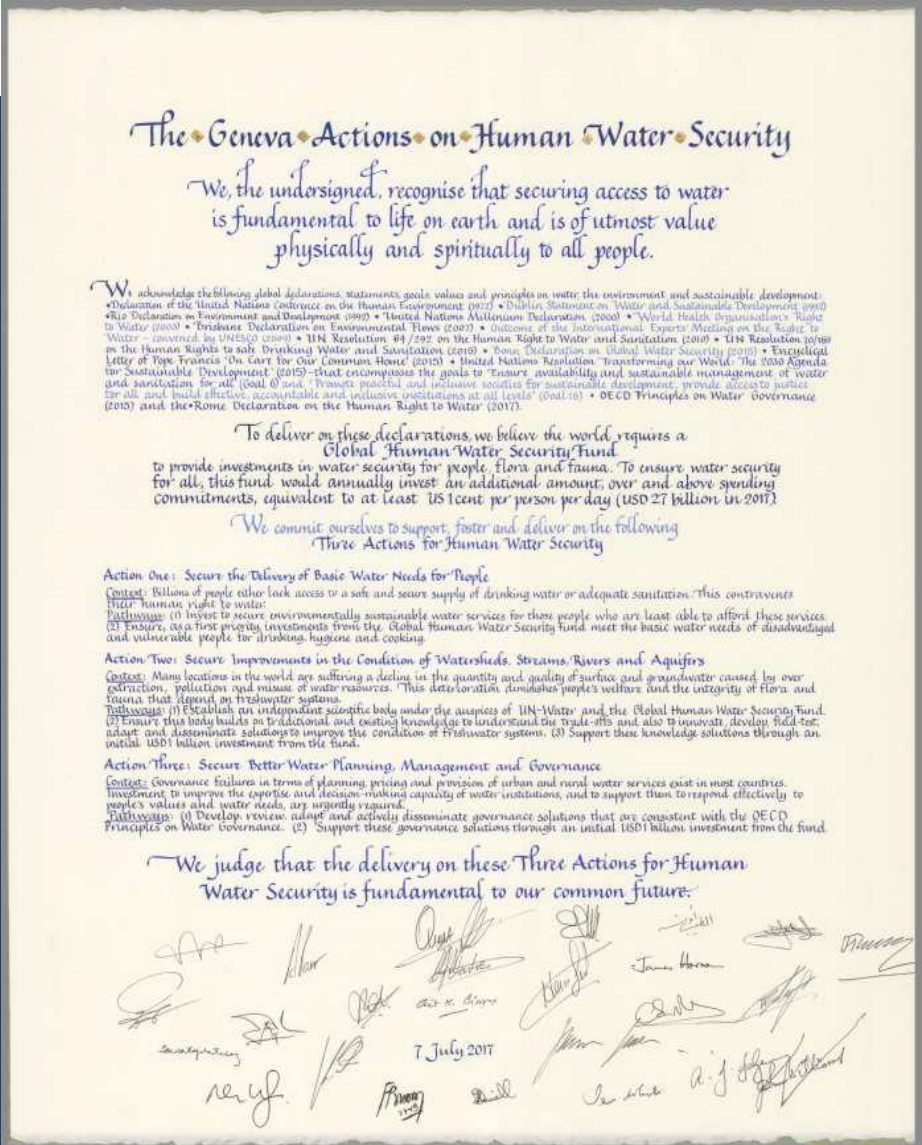 The Geneva Actions on Human Water Security
We, the undersigned, recognise that securing access to water
is fundamental to life on earth and is of utmost value
physically and spiritually to all people.
We acknowledge the following global declarations, statements, goals, values and principles on water, the environment and sustainable development:
•Declaration of the United Nations Conference on the Human Environment (1972) •Dublin Statement on Water and Sustainable Development (1992)
•Rio Declaration on Environment and Development (1992) •United Nations Millenium Declaration (2000) •World Health Organisation's 'Right
to Water' (2003) •Brisbane Declaration on Environmental Flows (2007) • Outcome of the International Experts' Meeting on the Right to
Water – convened by UNESCO (2009) • UN Resolution 64/292 on the Human Right to Water and Sanitation (2010) • UN Resolution 70/169
on the Human Rights to safe Drinking Water and Sanitation (2015) • Bonn Declaration on Global Water Security (2013) • Encyclical
Letter of Pope Francis 'On Care for Our Common Home' (2015) • United Nations Resolution 'Transforming our World: The 2030 Agenda
for Sustainable Development' (2015)–that encompasses the goals to 'Ensure availability and sustainable management of water
and sanitation for all' (Goal 6) and 'Promote peaceful and inclusive societies for sustainable development, provide access to justice
for all and build effective, accountable and inclusive institutions at all levels' (Goal 16) • OECD Principles on Water Governance
(2015) and the•Rome Declaration on the Human Right to Water (2017).
To deliver on these declarations, we believe the world requires a
Global Human Water Security Fund
to provide investments in water security for people, flora and fauna. To ensure water security
for all, this fund would annually invest an additional amount, over and above spending
commitments, equivalent to at least US 1 cent per person per day (USD 27 billion in 2017)
We commit ourselves to support, foster and deliver on the following
Three Actions for Human Water Security
Action One: Secure the Delivery of Basic Water Needs for People
Context: Billions of people either lack access to a safe and secure supply of drinking water or adequate sanitation. This contravenes
their human right to water.
Pathways: (1) Invest to secure environmentally sustainable water services for those people who are least able to afford these services.
(2) Ensure, as a first priority, investments from the Global Human Water Security Fund meet the basic water needs of disadvantaged
and vulnerable people for drinking, hygiene and cooking.
Action Two: Secure Improvements in the Condition of Watersheds, Streams, Rivers and Aquifers
Context: Many locations in the world are suffering a decline in the quantity and quality of surface and groundwater caused by over
extraction, pollution and misuse of water resources. This deterioration diminishes people's welfare and the integrity of flora and
fauna that depend on freshwater systems.
Pathways: (1) Establish an independent scientific body under the auspices of UN-Water and the Global Human Water Security Fund.
(2) Ensure this body builds on traditional and existing knowledge to understand the trade-offs and also to innovate, develop, field-test,
adapt and disseminate solutions to improve the condition of freshwater systems. (3) Support these knowledge solutions through an
initial USD1 billion investment from the fund.
Action Three: Secure Better Water Planning, Management and Governance
Context: Governance failures in terms of planning, pricing and provision of urban and rural water services exist in most countries.
Investment to improve the expertise and decision-making capacity of water institutions, and to support them to respond effectively to
people's values and water needs, are urgently required.
Pathways: (1) Develop, review, adapt and actively disseminate governance solutions that are consistent with the OECD
Principles on Water Governance. (2) Support these governance solutions through an initial USD1 billion investment from the fund.
We judge that the delivery on these Three Actions for Human
Water Security is fundamental to our common future.
7 July 2017